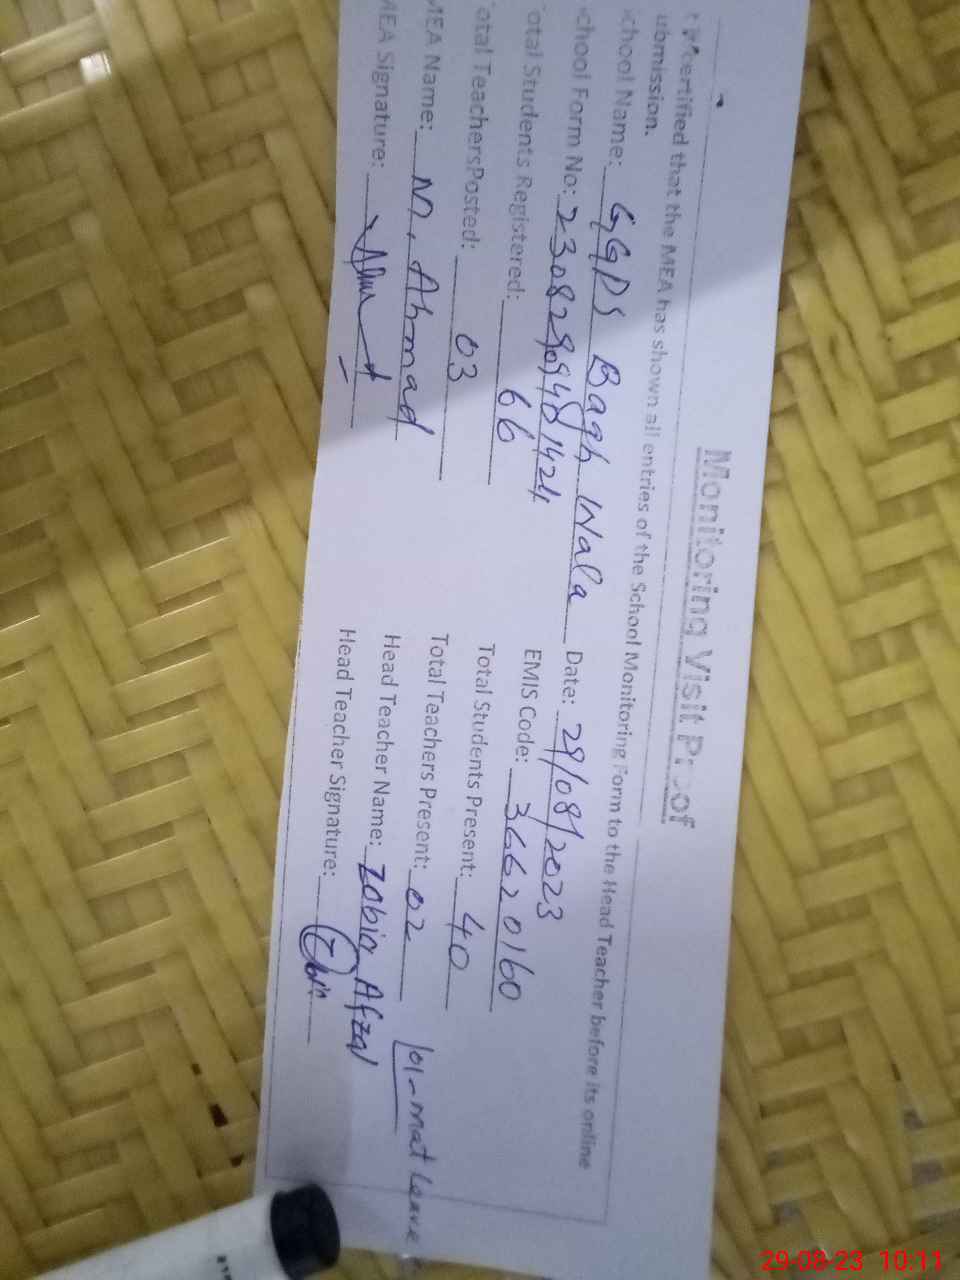 Monitoring Visit Proof
certified that the MEA has shown all entries of the School Monitoring Form to the Head Teacher before its online
ubmission.
chool Name: GGPS Bagh Wala Date: 29/08/2023
chool Form No: EMIS Code: 36620160
otal Students Registered: 66 Total Students Present: 40
otal TeachersPosted: 03 Total Teachers Present: 02 01-mat leave
MEA Name: M. Ahmad Head Teacher Name: Zobia Afzal
MEA Signature: Head Teacher Signature:
29-08-23 10:11